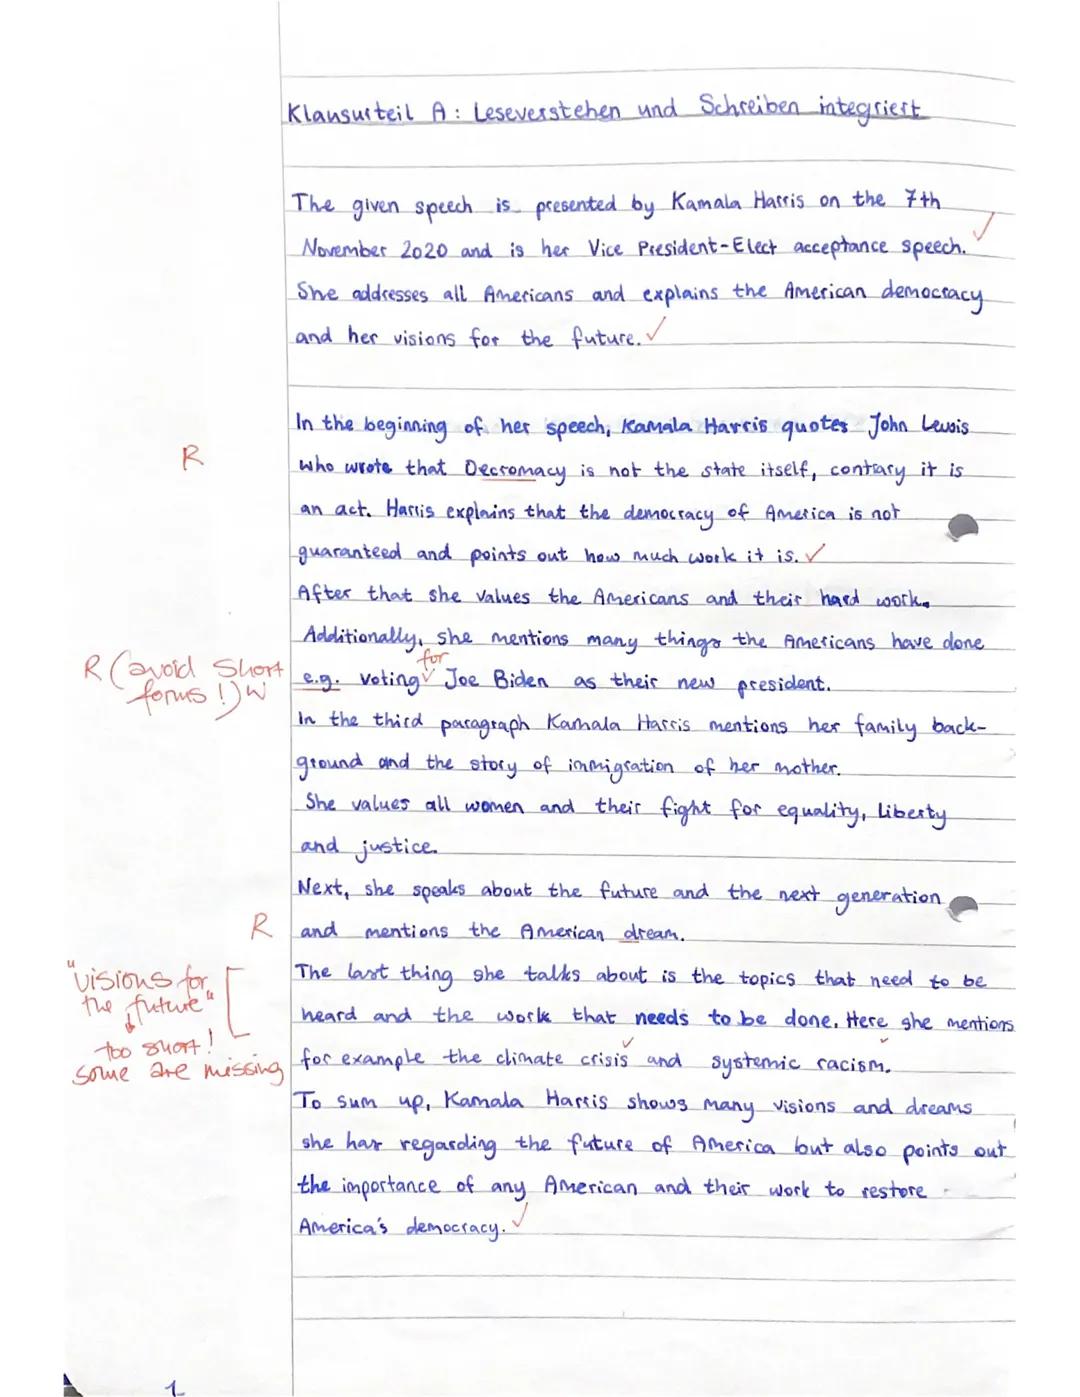 Klausurteil A: Leseverstehen und Schreiben integriert
The given speech is presented by Kamala Harris on the 7th
November 2020 and is her Vice President-Elect acceptance speech.
She addresses all Americans and explains the American democracy
and her visions for the future. ✓
In the beginning of her speech, Kamala Harris quotes John Lewis
R
who wrote that Decromacy is not the state itself, contrary it is
an act. Harris explains that the democracy of America is not
guaranteed and points out how much work it is. ✓
After that she values the Americans and their hard work.
Additionally, she mentions many things the Americans have done
for
R (avoid short forms!) W
e.g. voting Joe Biden as their new president.
In the third paragraph Kamala Harris mentions her family back-
ground and the story of immigration of her mother.
She values all women and their fight for equality, liberty
and justice.
Next, she speaks about the future and the next generation
R
and mentions the American dream.
"visions for
the future"
too short!
some are missing
The last thing she talks about is the topics that need to be
heard and the work that needs to be done. Here she mentions
for example the climate crisis and systemic racism.
To sum up, Kamala Harris shows many visions and dreams
she has regarding the future of America but also points out
the importance of any American and their work to restore
America's democracy. ✓
1